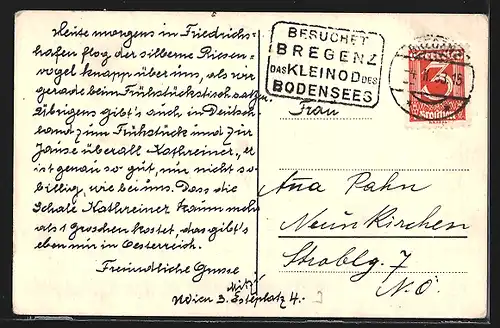 Heute morgens in Friedrichs-
hafen flog der silberne Riesen-
vogel knapp über uns, als wir
gerade beim Frühstückstisch saßen.
Übrigens gibt's auch in Deutsch-
land zum Frühstück und zur
Jause überall Kathreiner, er
ist genau so gut, nur nicht so
billig, wie bei uns. Dass die
Schale Kathreiner kaum mehr
als 1 Groschen kostet, das gibt's
eben nur in Oesterreich.
Freundliche Grüsse
Mitzi
Wien 3. Esteplatz 4.
BESUCHET
BREGENZ
DAS KLEINOD DES
BODENSEES
3
Groschen
Frau
Neunkirchen
N.Ö.